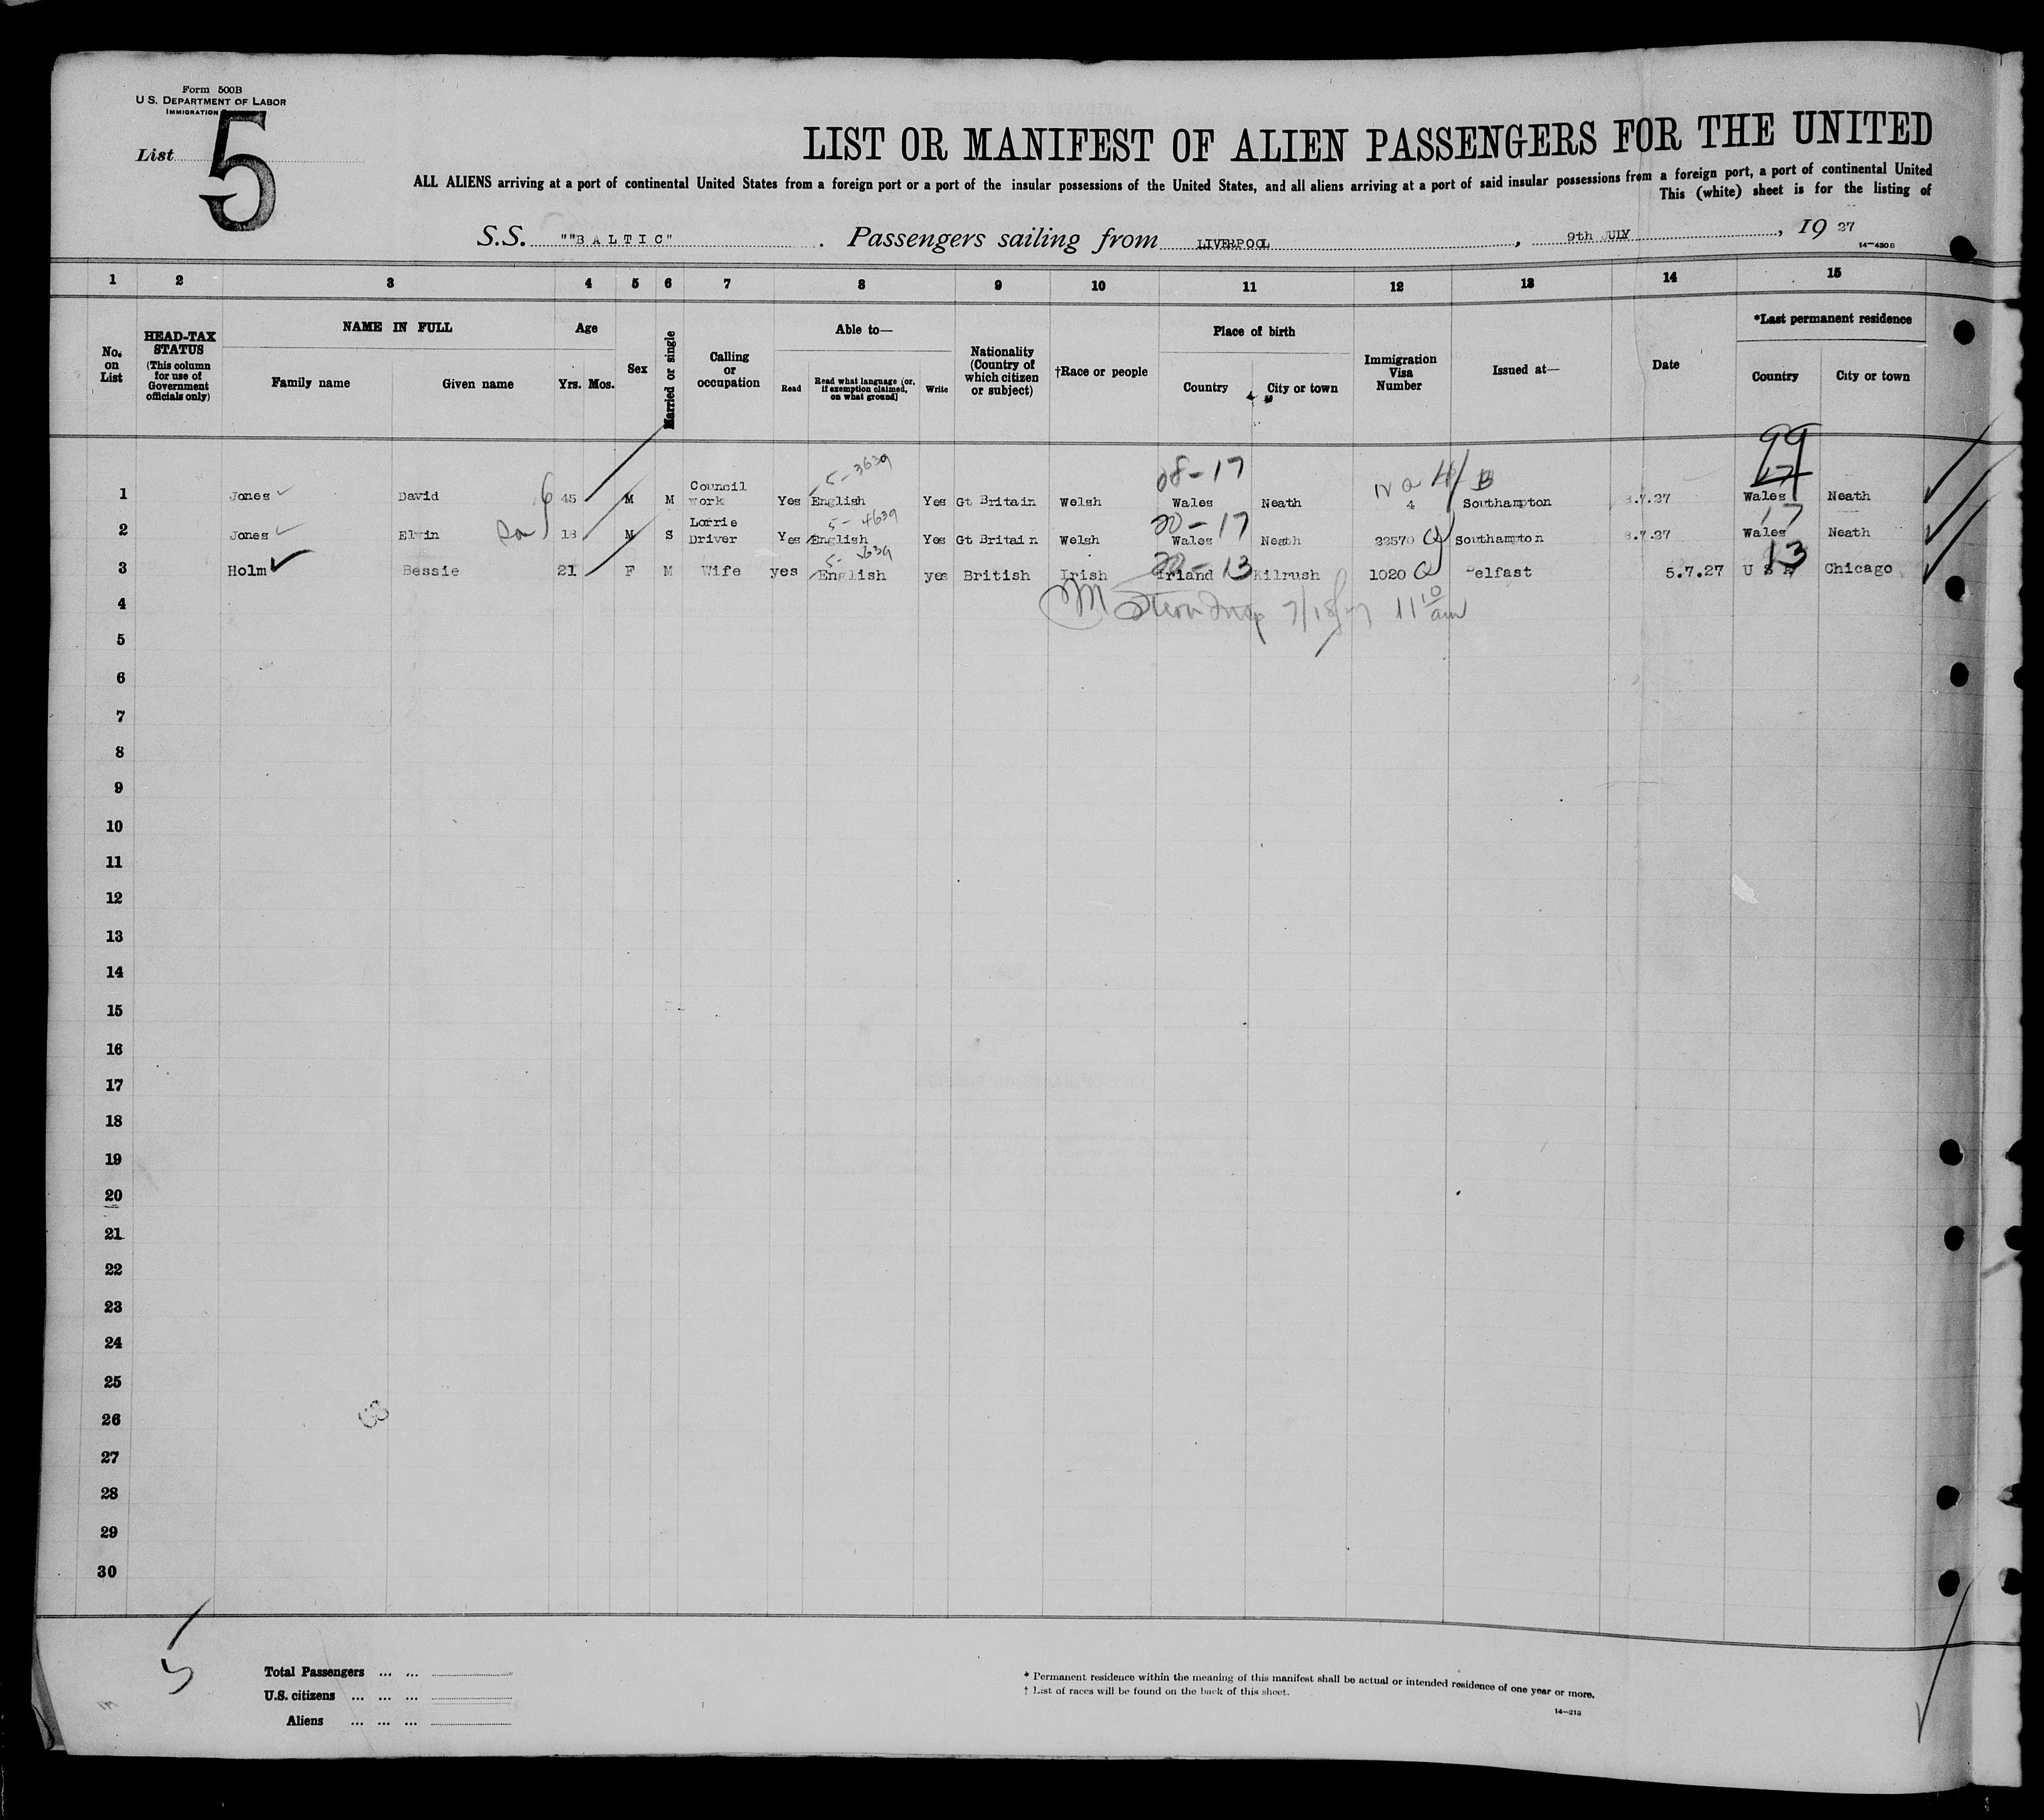 Form 500B
U.S. DEPARTMENT OF LABOR
IMMIGRATION
List 5
LIST OR MANIFEST OF ALIEN PASSENGERS FOR THE UNITED
ALL ALIENS arriving at a port of continental United States from a foreign port or a port of the insular possessions of the United States, and all aliens arriving at a port of said insular possessions from a foreign port, a port of continental United
This (white) sheet is for the listing of
S.S. ""BALTIC" . Passengers sailing from LIVERPOOL , 9th JULY , 19 27
14-430B
1 2 3 4 5 6 7 8 9 10 11 12 13 14 15
No. on List
HEAD-TAX STATUS (This column for use of Government officials only)
NAME IN FULL
Family name Given name
Age
Yrs. Mos.
Sex
Married or single
Calling or occupation
Able to—
Read Read what language [or, if exemption claimed, on what ground] Write
Nationality (Country of which citizen or subject)
†Race or people
Place of birth
Country City or town
Immigration Visa Number
Issued at—
Date
*Last permanent residence
Country City or town
5-3639 08-17 99
1 Jones David 45 M M Council work Yes English Yes Gt Britain Welsh Wales Neath 4 Southampton 8.7.27 Wales Neath
5-4639 20-17 17
2 Jones Elwin 18 M S Lorrie Driver Yes English Yes Gt Britain Welsh Wales Neath 22570 Q Southampton 8.7.27 Wales Neath
20-13 13
3 Holm Bessie 21 F M Wife yes English yes British Irish Irland Kilrush 1020 Q Belfast 5.7.27 U S A Chicago
4 7/18/27 11 10 am
5
6
7
8
9
10
11
12
13
14
15
16
17
18
19
20
21
22
23
24
25
26
27
28
29
30
Total Passengers ... ...
U.S. citizens ... ... ...
Aliens ... ... ...
* Permanent residence within the meaning of this manifest shall be actual or intended residence of one year or more.
† List of races will be found on the back of this sheet.
14-213